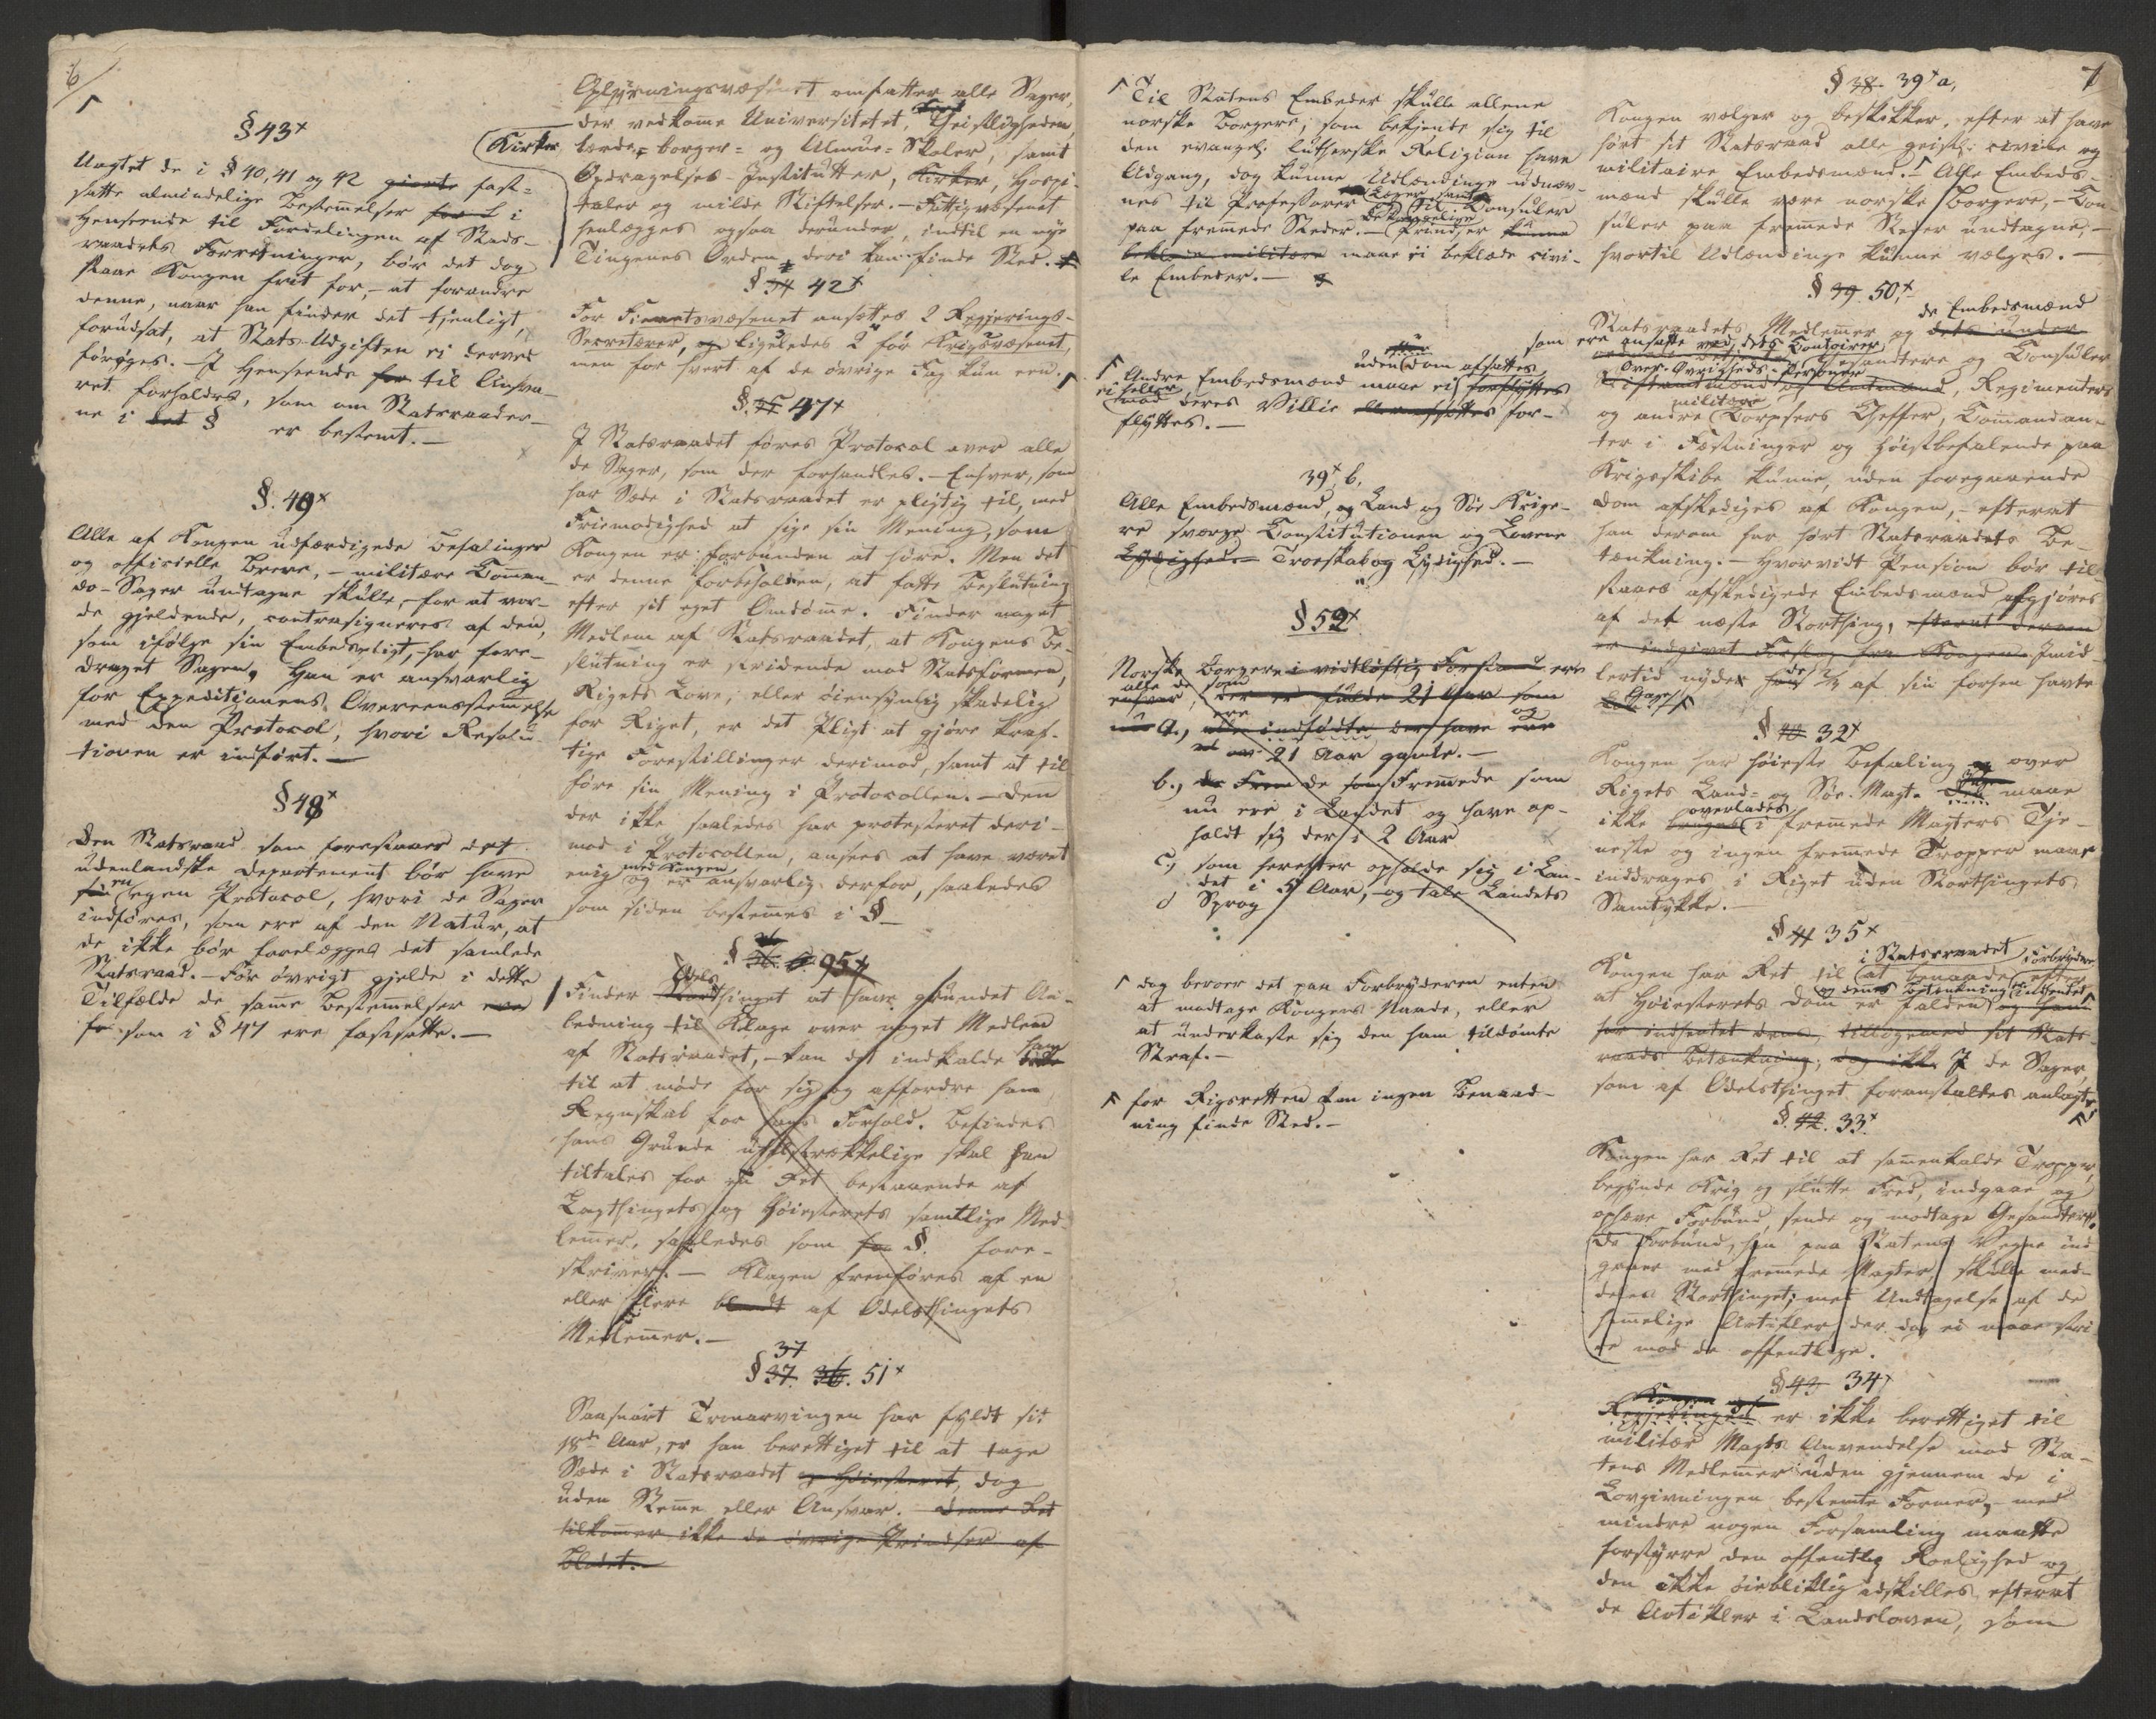 6
§ 43
Uagtet de i § 40, 41 og 42 giorte fast=
satte almindelige Bestemmelser for i
Henseende til Fordelingen af Stads-
raadets Forretninger, bør det dog
staae Kongen frit for, at forandre
denne, naar han finder det tjenligt,
forudsat, at Stats-Udgiften ei derved
forøges. - I Henseende for til Ansva-
ret forholdes, som om Statsraader-
ne i det § er bestemt. -
§. 49
Alle af Kongen udfærdigede Befalinger
og officielle Breve, - militære Comman-
do-Sager undtagne skulle, - for at vor-
de gjeldende, contrasigneres af den,
som ifølge sin Embedspligt, har fore-
draget Sagen. Han er ansvarlig
for Expeditionens Overeensstemmelse
med den Protocol, hvori Resolu-
tionen er indført. -
§ 48
Den Statsraad som forestaaer det
udenlandske Departement bør have
sin en egen Protocol, hvori de Sager
indføres, som ere af den Natur, at
de ikke bør forelægges det samlede
Statsraad. - For øvrigt gjelde i dette
Tilfælde de samme Bestemmelser
som i § 47 ere fastsatte. -
Oplysningsvæsenet omfatter alle Sager,
der vedkomme Universitetet, Geistligheden,
Kirker lærde- borger- og Almue-Skoler, samt
Opdragelses-Institutter, Kirker, Hospi-
taler og milde Stiftelser. - Fattigvæsenet
henlægges ogsaa derunder, indtil en nye
Tingenes Orden deri kan finde Sted.
§ 34 42
For Finantsvæsenet ansættes 2 Regjerings-
Secretærer, og ligeledes 2 for Krigsvæsenet,
men for hvert af de øvrige Fag kun een.
§. 35 47
I Statsraadet føres Protocol over alle
de Sager, som der forhandles. - Enhver, som
har Sæde i Statsraadet er pligtig til, med
Friemodighed at sige sin Mening, som
Kongen er forbunden at høre. Men det
er denne forbeholden, at fatte Beslutning
efter sit eget Omdømme. Finder noget
Medlem af Statsraadet, at Kongens Be-
slutning er stridende mod Statsformen,
Rigets Love, eller øiensynlig skadelig
for Riget, er det Pligt at gjøre kraf-
tige Forestillinger derimod, samt at til
føre sin Mening i Protocollen. - Den
der ikke saaledes har protesteret deri-
mod i Protocollen, ansees at have været
enig med Kongen og er ansvarlig derfor, saaledes
som siden bestemmes i § -
§ 36. 95
Finder Storthinget Odels at have grundet An-
ledning til Klage over noget Medlem
af Statsraadet, - kan det indkalde ham
til at møde for sig og affordre ham
Regnskab for hans Forhold. Befindes
hans Grunde utilstrækkelige skal han
tiltales for en Ret bestaaende af
Lagthingets og Høiesterets samtlige Med-
lemmer, saaledes som for §. fore-
skriver. - Klagen fremføres af en
eller flere blandt af Odelsthingets
Medlemmer. -
37
§ 37. 36. 51
Saasnart Tronarvingen har fyldt sit
18de Aar, er han berettiget til at tage
Sæde i Statsraadet og Høiesteret, dog
uden Stemme eller Ansvar. - Denne Ret
tilkommer ikke de øvrige Prindser af
Blodet. -
Til Statens Embeder skulle allene
norske Borgere, som bekjende sig til
den evangel: lutherske Religion have
Adgang, dog kunne Udlændinge udnæv-
nes til Professorer Læger samt til Consuler
paa fremmede Steder. - Kongelige Prindser kunne
beklæde militære maae ei beklæde civi-
le Embeder. -
Andre Embedsmænd maae ei uden Dom afsættes forflyttes
ei heller mod deres Villie for-
flyttes. -
39, b,
Alle Embedsmænd, og Land og Søe Krige-
re sværge Constitutionen og Lovene
Lydighed. - Troeskab og Lydighed. -
§ 52
Norske Borgere i vidtløftig Forstand ere
alle de som der ere fulde 21 Aar som
a., ere alle indfødte der have og
21 Aar gamle. -
b., de Frem de som Fremmede som
nu ere i Landet og have op-
holdt sig der i 2 Aar
c., som herefter opholde sig i Lan-
det i 5 Aar, - og tale Landets
Sprog
dog beroer det paa Forbryderen enten
at modtage Kongens Naade, eller
at underkaste sig den ham tildømte
Straf. -
for Rigsretten kan ingen Benaad-
ning finde Sted. -
7
§ 38. 39 a,
Kongen vælger og beskikker, efter at have
hørt sit Statsraad alle geistl: civile og
militaire Embedsmænd. - Alle Embeds-
mænd skulle være norske Borgere, - Con-
suler paa fremmede Steder undtagne, -
hvortil Udlændinge kunne vælges. -
§ 39 50,
Statsraadets Medlemmer og de Embedsmænd dets under
som ere ansatte ved dets Contoirer, Gesandtere og Consuler
Over-Øvrigheds-Personer Stiftamtmænd og Amtmænd, Regimenters
og andre militære Corpsers Cheffer, Commandan-
ter i Fæstninger og Høistbefalende paa
Krigsskibe kunne, uden foregaaende
Dom afskediges af Kongen, - efterat
han derom har hørt Statsraadets Be-
tænkning. - Hvorvidt Pension bør til
staaes afskedigede Embedsmænd afgjøres
af det næste Storthing, efterat derom
er indgivet Forslag fra Kongen. Imid-
lertid nyder de 2/3 af sin forhen havte
Gage.
§ 40 32
Kongen har høieste Befaling over
Rigets Land- og Søe-Magt. Den maae
ikke overlades i fremmede Magters Tje-
neste og ingen fremmede Tropper maae
inddrages i Riget uden Storthingets
Samtykke. -
§ 41 35
Kongen har Ret til i Statsraadet at benaade Forbrydere efter
at Høiesterets Dom er falden og dens Betænkning indhentet og han
har indhentet dens, tilligemed sit Stats-
raads Betænkning; dog ikke I de Sager
som af Odelsthinget foranstaltes anlagte
§. 42. 33
Kongen har Ret til at sammenkalde Tropper,
begynde Krig og slutte Fred, indgaae og
ophæve Forbund, sende og modtage Gesandtere.
De Forbund, han paa Statens Vegne ind
gaaer med fremmede Magter, skulle med-
deles Storthinget, med Undtagelse af de
hemmelige Artikler der dog ei maae stri
de mod de offentlige.
§ 43 34
Regjeringen er ikke berettiget til
militær Magts Anvendelse mod Sta-
tens Medlemmer uden gjennem de i
Lovgivningen bestemte Former, med
mindre nogen Forsamling maatte
forstyrre den offentlig Roelighed og
den ikke øieblikkelig adskilles efterat
de Artikler i Landsloven, som